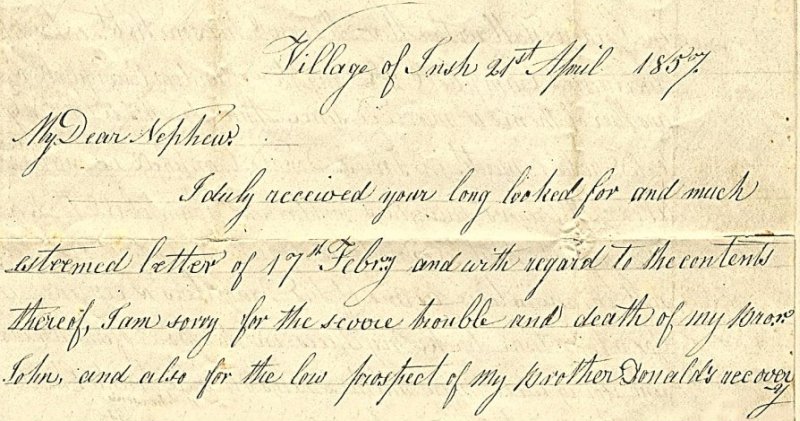 Village of Insh 21st April 1857
My Dear Nephew.
I duly received your long looked for and much
esteemed letter of 17th Febry and with regard to the contents
thereof, I am sorry for the severe trouble and death of my Bror
John, and also for the low prospect of my Brother Donald's recovery